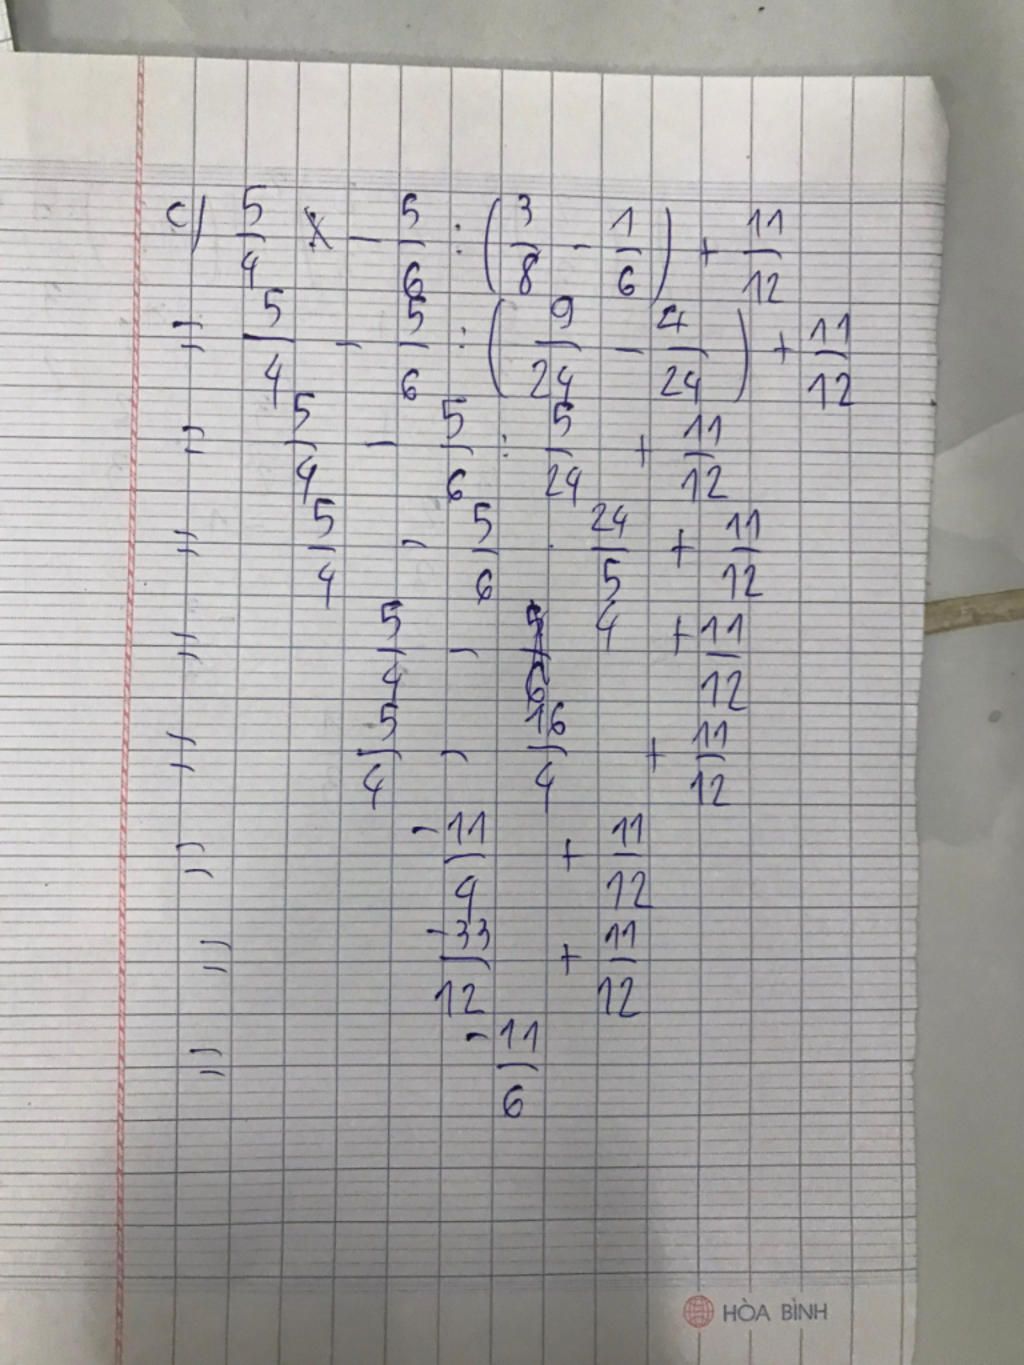 c) 5/4 - 5/6 : (3/8 - 1/6) + 11/12
= 5/4 - 5/6 : (9/24 - 4/24) + 11/12
= 5/4 - 5/6 : 5/24 + 11/12
= 5/4 - 5/6 . 24/5 + 11/12
= 5/4 - 4 + 11/12
= 5/4 - 16/4 + 11/12
= -11/4 + 11/12
= -33/12 + 11/12
= -11/6
HÒA BÌNH